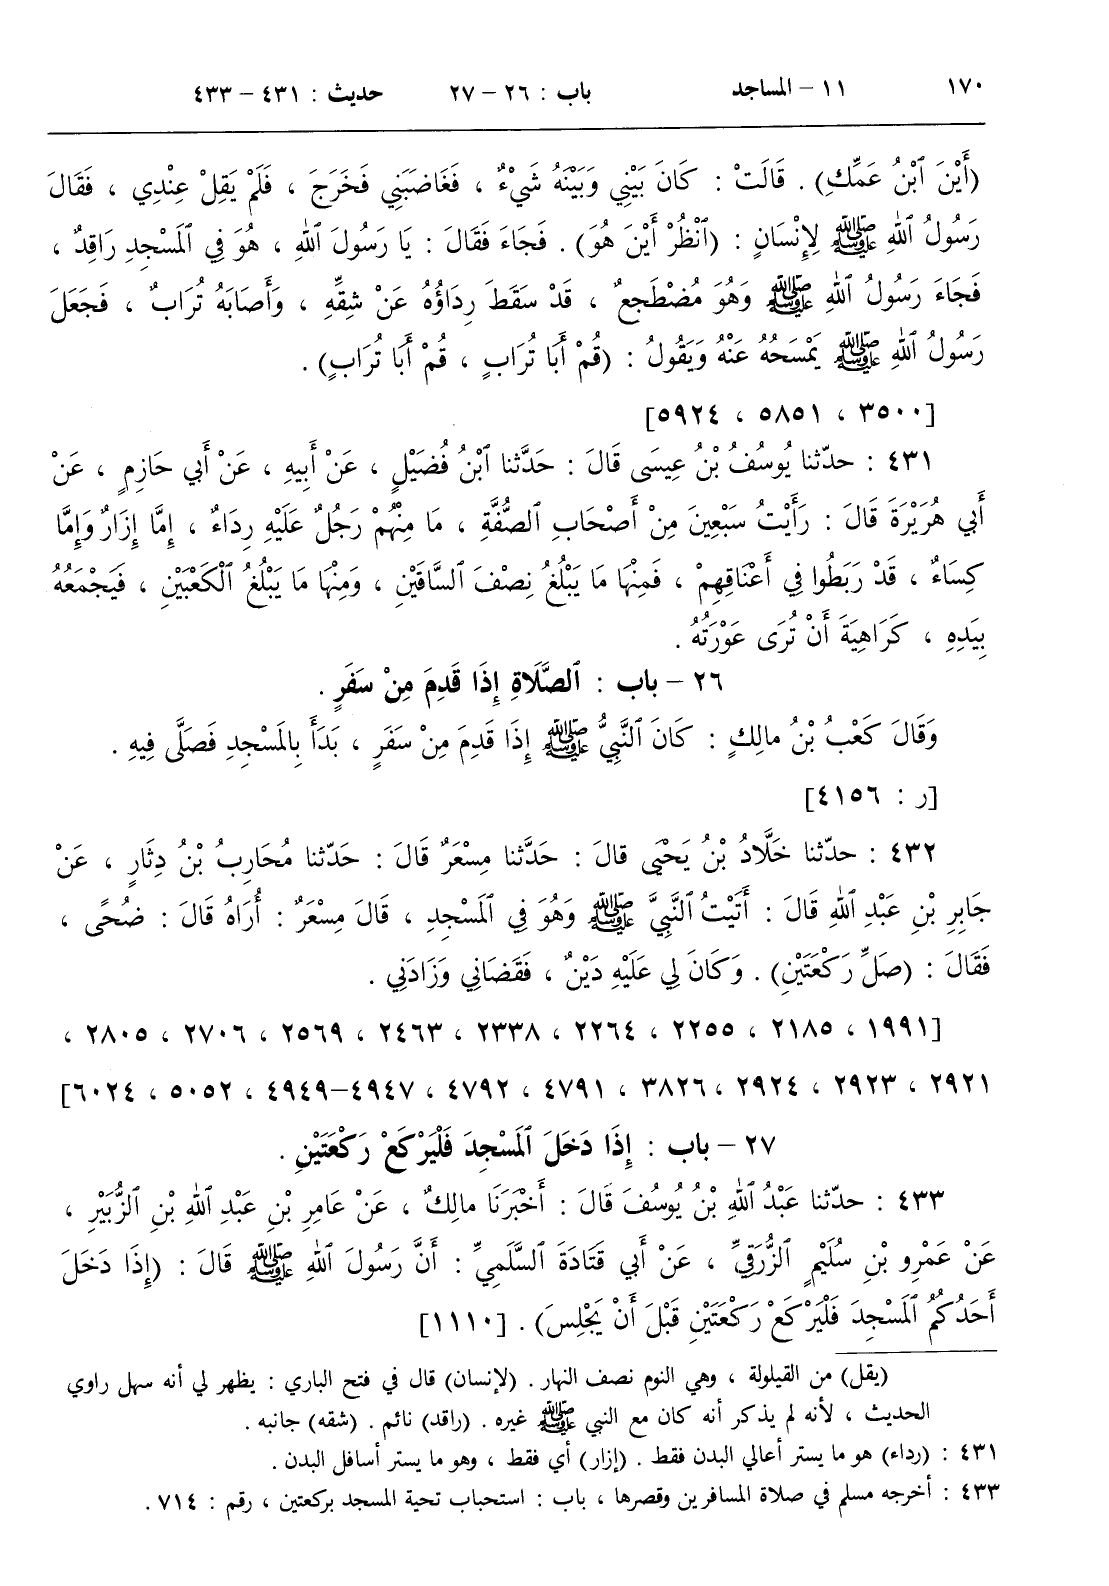 ١٧٠ ١١ – المساجد باب : ٢٦ – ٢٧ حديث : ٤٣١ – ٤٣٣
(أَيْنَ ٱبْنُ عَمِّكِ) . قَالَتْ : كَانَ بَيْنِي وَبَيْنَهُ شَيْءٌ ، فَغَاضَبَنِي فَخَرَجَ ، فَلَمْ يَقِلْ عِنْدِي ، فَقَالَ
رَسُولُ ٱللهِ ﷺ لِإِنْسَانٍ : (ٱنْظُرْ أَيْنَ هُوَ) . فَجَاءَ فَقَالَ : يَا رَسُولَ ٱللهِ ، هُوَ فِي ٱلْمَسْجِدِ رَاقِدٌ ،
فَجَاءَ رَسُولُ ٱللهِ ﷺ وَهُوَ مُضْطَجِعٌ ، قَدْ سَقَطَ رِدَاؤُهُ عَنْ شِقِّهِ ، وَأَصَابَهُ تُرَابٌ ، فَجَعَلَ
رَسُولُ ٱللهِ ﷺ يَمْسَحُهُ عَنْهُ وَيَقُولُ : (قُمْ أَبَا تُرَابٍ ، قُمْ أَبَا تُرَابٍ) .
[٣٥٠٠ ، ٥٨٥١ ، ٥٩٢٤]
٤٣١ : حدّثنا يُوسُفُ بْنُ عِيسَى قَالَ : حَدَّثنا ٱبْنُ فُضَيْلٍ ، عَنْ أَبِيهِ ، عَنْ أَبي حَازِمٍ ، عَنْ
أَبي هُرَيْرَةَ قَالَ : رَأَيْتُ سَبْعِينَ مِنْ أَصْحَابِ ٱلصُّفَّةِ ، مَا مِنْهُمْ رَجُلٌ عَلَيْهِ رِدَاءٌ ، إِمَّا إِزَارٌ وَإِمَّا
كِسَاءٌ ، قَدْ رَبَطُوا فِي أَعْنَاقِهِمْ ، فَمِنْهَا مَا يَبْلُغُ نِصْفَ ٱلسَّاقَيْنِ ، وَمِنْهَا مَا يَبْلُغُ ٱلْكَعْبَيْنِ ، فَيَجْمَعُهُ
بِيَدِهِ ، كَرَاهِيَةَ أَنْ تُرَى عَوْرَتُهُ .
٢٦ – باب : ٱلصَّلَاةِ إِذَا قَدِمَ مِنْ سَفَرٍ .
وَقَالَ كَعْبُ بْنُ مالِكٍ : كَانَ ٱلنَّبِيُّ ﷺ إِذَا قَدِمَ مِنْ سَفَرٍ ، بَدَأَ بِالمَسْجِدِ فَصَلَّى فِيهِ .
[ر : ٤١٥٦]
٤٣٢ : حدّثنا خَلَّادُ بْنُ يَحْيَى قالَ : حَدَّثنا مِسْعَرٌ قَالَ : حَدّثنا مُحَارِبُ بْنُ دِثَارٍ ، عَنْ
جَابِرِ بْنِ عَبْدِ ٱللهِ قَالَ : أَتَيْتُ ٱلنَّبِيَّ ﷺ وَهُوَ فِي ٱلْمَسْجِدِ ، قَالَ مِسْعَرٌ : أُرَاهُ قَالَ : ضُحًى ،
فَقَالَ : (صَلِّ رَكْعَتَيْنِ) . وَكَانَ لِي عَلَيْهِ دَيْنٌ ، فَقَضَانِي وَزَادَنِي .
[١٩٩١ ، ٢١٨٥ ، ٢٢٥٥ ، ٢٢٦٤ ، ٢٣٣٨ ، ٢٤٦٣ ، ٢٥٦٩ ، ٢٧٠٦ ، ٢٨٠٥ ،
٢٩٢١ ، ٢٩٢٣ ، ٢٩٢٤ ، ٣٨٢٦ ، ٤٧٩١ ، ٤٧٩٢ ، ٤٩٤٧–٤٩٤٩ ، ٥٠٥٢ ، ٦٠٢٤]
٢٧ – باب : إِذَا دَخَلَ ٱلْمَسْجِدَ فَلْيَرْكَعْ رَكْعَتَيْنِ .
٤٣٣ : حدّثنا عَبْدُ ٱللهِ بْنُ يُوسُفَ قَالَ : أَخْبَرَنَا مالِكٌ ، عَنْ عَامِرِ بْنِ عَبْدِ ٱللهِ بْنِ ٱلزُّبَيْرِ ،
عَنْ عَمْرِو بْنِ سُلَيْمٍ ٱلزُّرَقِيِّ ، عَنْ أَبي قَتَادَةَ ٱلسَّلَمِيِّ : أَنَّ رَسُولَ ٱللهِ ﷺ قَالَ : (إِذَا دَخَلَ
أَحَدُكُمُ ٱلْمَسْجِدَ فَلْيَرْكَعْ رَكْعَتَيْنِ قَبْلَ أَنْ يَجْلِسَ) . [١١١٠]
(يقل) من القيلولة ، وهي النوم نصف النهار . (لإنسان) قال في فتح الباري : يظهر لي أنه سهل راوي
الحديث ، لأنه لم يذكر أنه كان مع النبي ﷺ غيره . (راقد) نائم . (شقه) جانبه .
٤٣١ : (رداء) هو ما يستر أعالي البدن فقط . (إزار) أي فقط ، وهو ما يستر أسافل البدن .
٤٣٣ : أخرجه مسلم في صلاة المسافرين وقصرها ، باب : استحباب تحية المسجد بركعتين ، رقم : ٧١٤ .